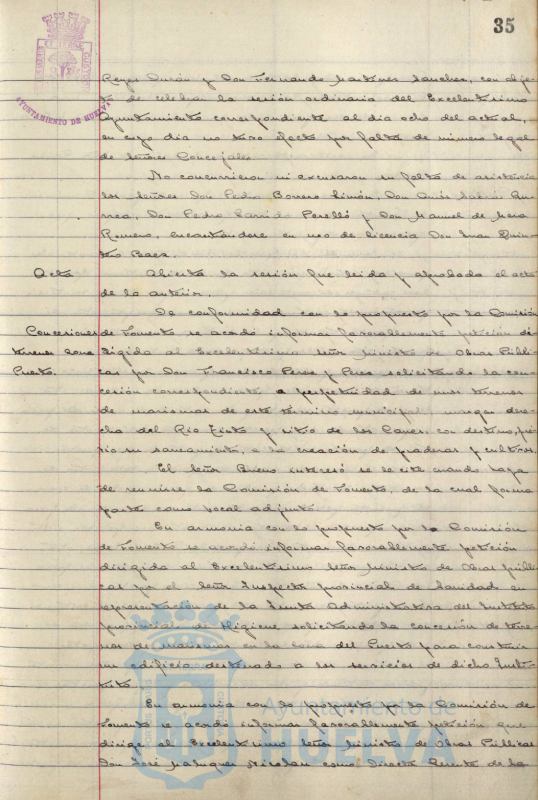 35
AYUNTAMIENTO DE HUELVA
Reyes Durán y Don Fernando Martínez Sánchez, con obje-
to de celebrar la sesión ordinaria del Excelentísimo
Ayuntamiento correspondiente al día ocho del actual,
en cuyo día no tuvo efecto por falta de número legal
de Señores Concejales.
No concurrieron ni excusaron su falta de asistencia
los Señores Don Pedro Borrero Limón, Don
Don Pedro Garrido Perelló y Don Manuel de Mora
Romero, encontrándose en uso de licencia Don Juan Quin-
tero Baez.
Acta
Abierta la sesión fue leida y aprobada el acta
de la anterior.
De conformidad con lo propuesto por la Comisión
Concesiones
de Fomento se acordó informar favorablemente petición di-
terrenos zona
rigida al Excelentísimo Señor Ministro de Obras Públi-
Puerto.
cas por Don Francisco Perez y Perez solicitando la con-
cesión correspondiente a perpetuidad de unos terrenos
de marismas de este término municipal, margen dere-
cha del Rio Tinto y sitio de los con destino, pre-
vio su saneamiento, a la creación de praderas y cultivos.
El Señor Bueno interesó se le cite cuando haya
de reunirse la Comisión de Fomento, de la cual forma
parte como vocal adjunto.
En armonia con lo propuesto por la Comisión
de Fomento se acordó informar favorablemente petición
dirigida al Excelentísimo Señor Ministro de Obras públi-
cas por el Señor Inspector provincial de Sanidad en
representación de la Junta Administrativa del Instituto
provincial de Higiene solicitando la concesión de terre-
nos de marismas en la zona del Puerto para construir
un edificio destinado a los servicios de dicho Insti-
tuto.
En armonia con lo propuesto por la Comisión de
Fomento se acordó informar favorablemente petición que
dirige al Excelentísimo Señor Ministro de Obras Públicas
Don José Nicolau como Director Gerente de la
Ayuntamiento de
HUELVA